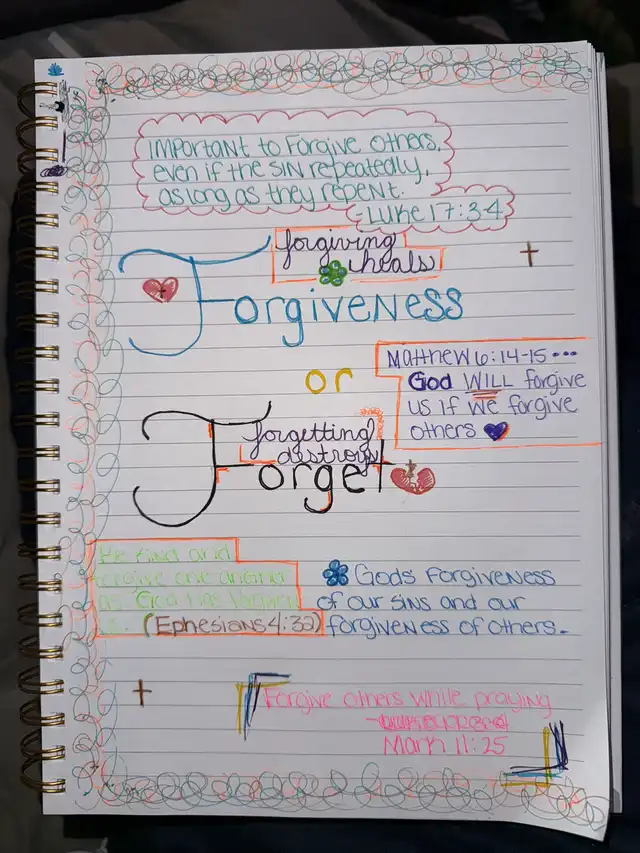 Important to Forgive others,
even if the sin repeatedly,
as long as they repent.
-Luke 17:3-4
forgiving
heals
Forgiveness
or
Matthew 6:14-15...
God WILL forgive
us if we forgive
others
forgetting
distroys
Forget
Be kind and
forgive one another
as God has
(Ephesians 4:32)
Gods Forgiveness
of our sins and our
forgiveness of others.
Forgive others while praying
Mark 11:25